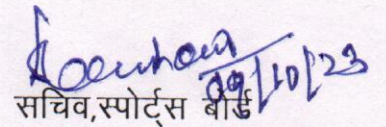 09/10/23
सचिव,स्पोर्ट्स बोर्ड